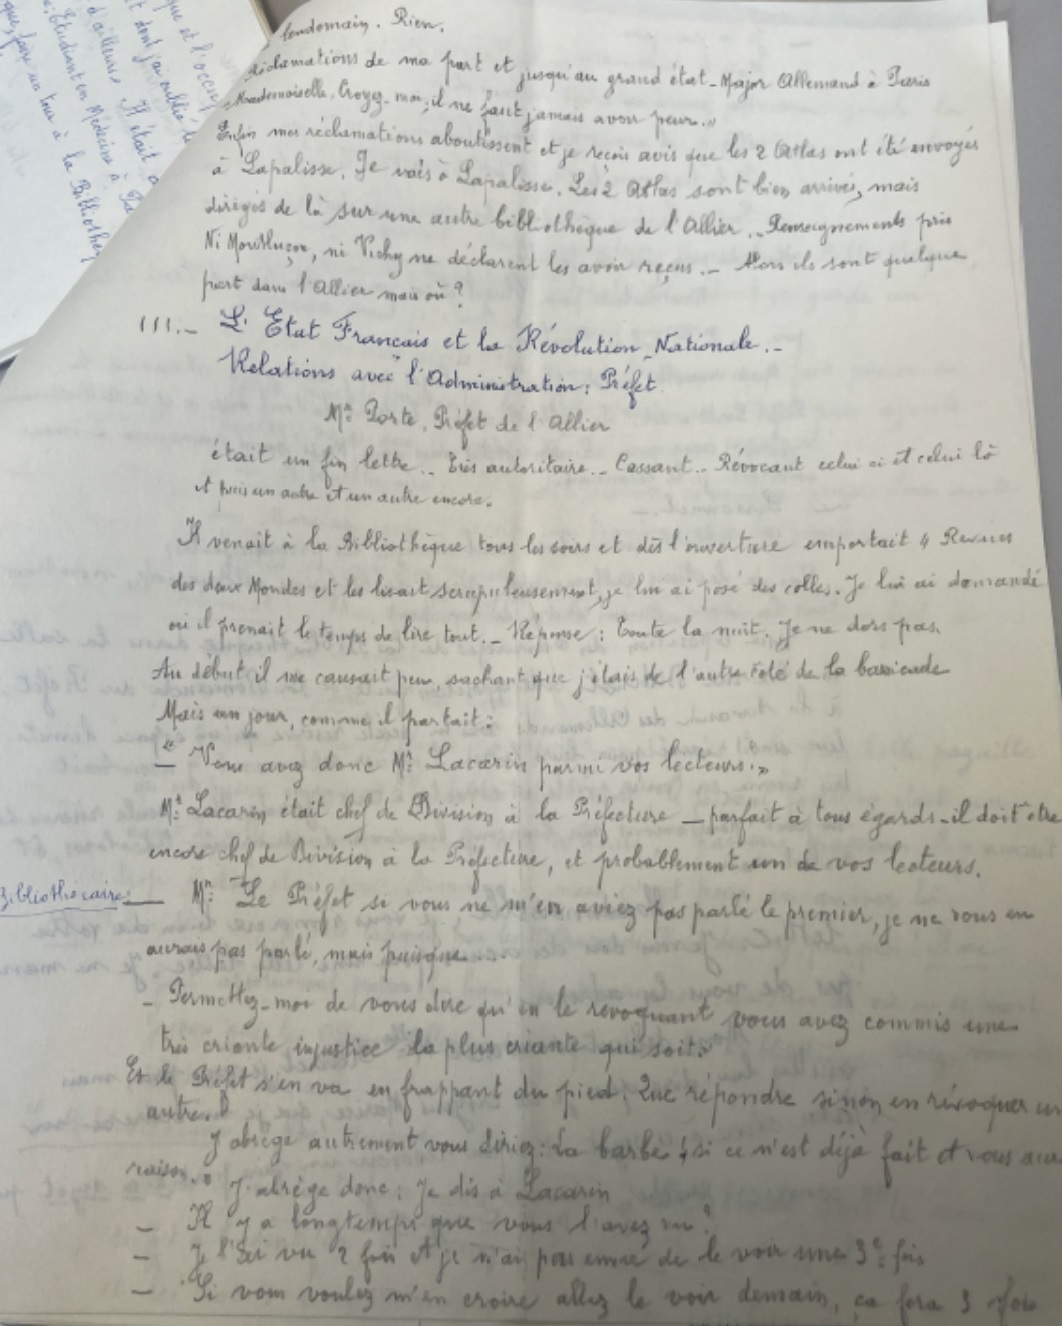 lendemain. Rien.
Réclamations de ma part et jusqu'au grand état-Major Allemand à Paris
Mademoiselle, Croyez-moi, il ne faut jamais avoir peur."
Enfin mes réclamations aboutissent et je reçois avis que les 2 Atlas ont été envoyés
à Lapalisse. Je vais à Lapalisse. Les 2 Atlas sont bien arrivés, mais
dirigés de là sur une autre bibliothèque de l'Allier. - Renseignements pris
Ni Montluçon, ni Vichy ne déclarent les avoir reçus. - Alors ils sont quelque
part dans l'Allier mais où ?
III. - L'Etat Français et la Révolution Nationale. -
Relations avec l'Administration : Préfet.
Mr Porte, Préfet de l'Allier
était un fin lettré - Très autoritaire. - Cassant. - Révocant celui ci et celui là
et puis un autre et un autre encore.
Il venait à la Bibliothèque tous les soirs et dès l'ouverture emportait 4 Revues
des deux Mondes et les lisait scrupuleusement, je lui ai posé des colles. Je lui ai demandé
où il prenait le temps de lire tout. - Réponse : Toute la nuit. Je ne dors pas.
Au début il me causait peu, sachant que j'étais de l'autre côté de la barricade
Mais un jour, comme il partait :
" - Vous avez donc Mr Lacarin parmi vos lecteurs."
Mr Lacarin était chef de Division à la Préfecture - parfait à tous égards - il doit être
encore chef de Division à la Préfecture, et probablement un de vos lecteurs.
Bibliothécaire : - Mr Le Préfet si vous ne m'en aviez pas parlé le premier, je ne vous en
aurais pas parlé, mais puisque
- Permettez-moi de vous dire qu'en le révoquant vous avez commis une
très criante injustice la plus criante qui soit."
Et le Préfet s'en va en frappant du pied. Que répondre sinon en révoquer un
autre.
J'abrège autrement vous diriez : La barbe ! si ce n'est déjà fait et vous
raison."
J'abrège donc : Je dis à Lacarin
- Il y a longtemps que vous l'avez vu ?
- Je l'ai vu 2 fois et je n'ai pas envie de le voir une 3e fois
- Si vous voulez m'en croire allez le voir demain, ça fera 3 fois